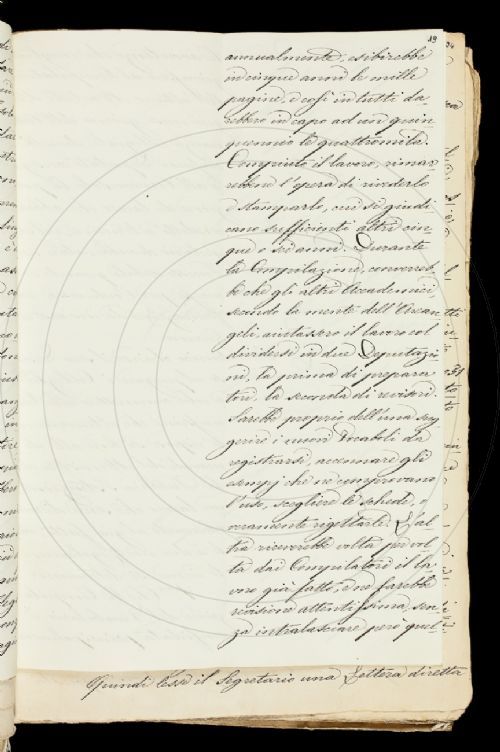 19
annualmente, esibirebbe
in cinque anni le mille
pagine, e così in tutti da-
rebbero in capo ad un quin
quennio le quattromila.
Compiuto il lavoro, rimar-
rebbe l'opera di rivederlo
e stamparlo, cui si giudi-
cano sufficienti altri cin-
que o sei anni. Durante
la Compilazione, converreb-
be che gli altri Accademici,
secondo la mente dell'Arcan
geli, aiutassero il lavoro col
dividersi in due Deputazio
ni, la prima di prepara
tori, la seconda di revisori.
Sarebbe proprio dell'una sug
gerire i nuovi Vocaboli da
registrarsi, accennare gli
esempj che ne comprovano
l'uso, scegliere le schede, o
veramente rigettarle. L'al
tra riceverebbe volta per vol-
ta dai Compilatori il la-
voro già fatto, e ne farebbe
revisione attentissima, sen-
za intralasciare però quel-
Quindi lesse il Segretario una Lettera diretta